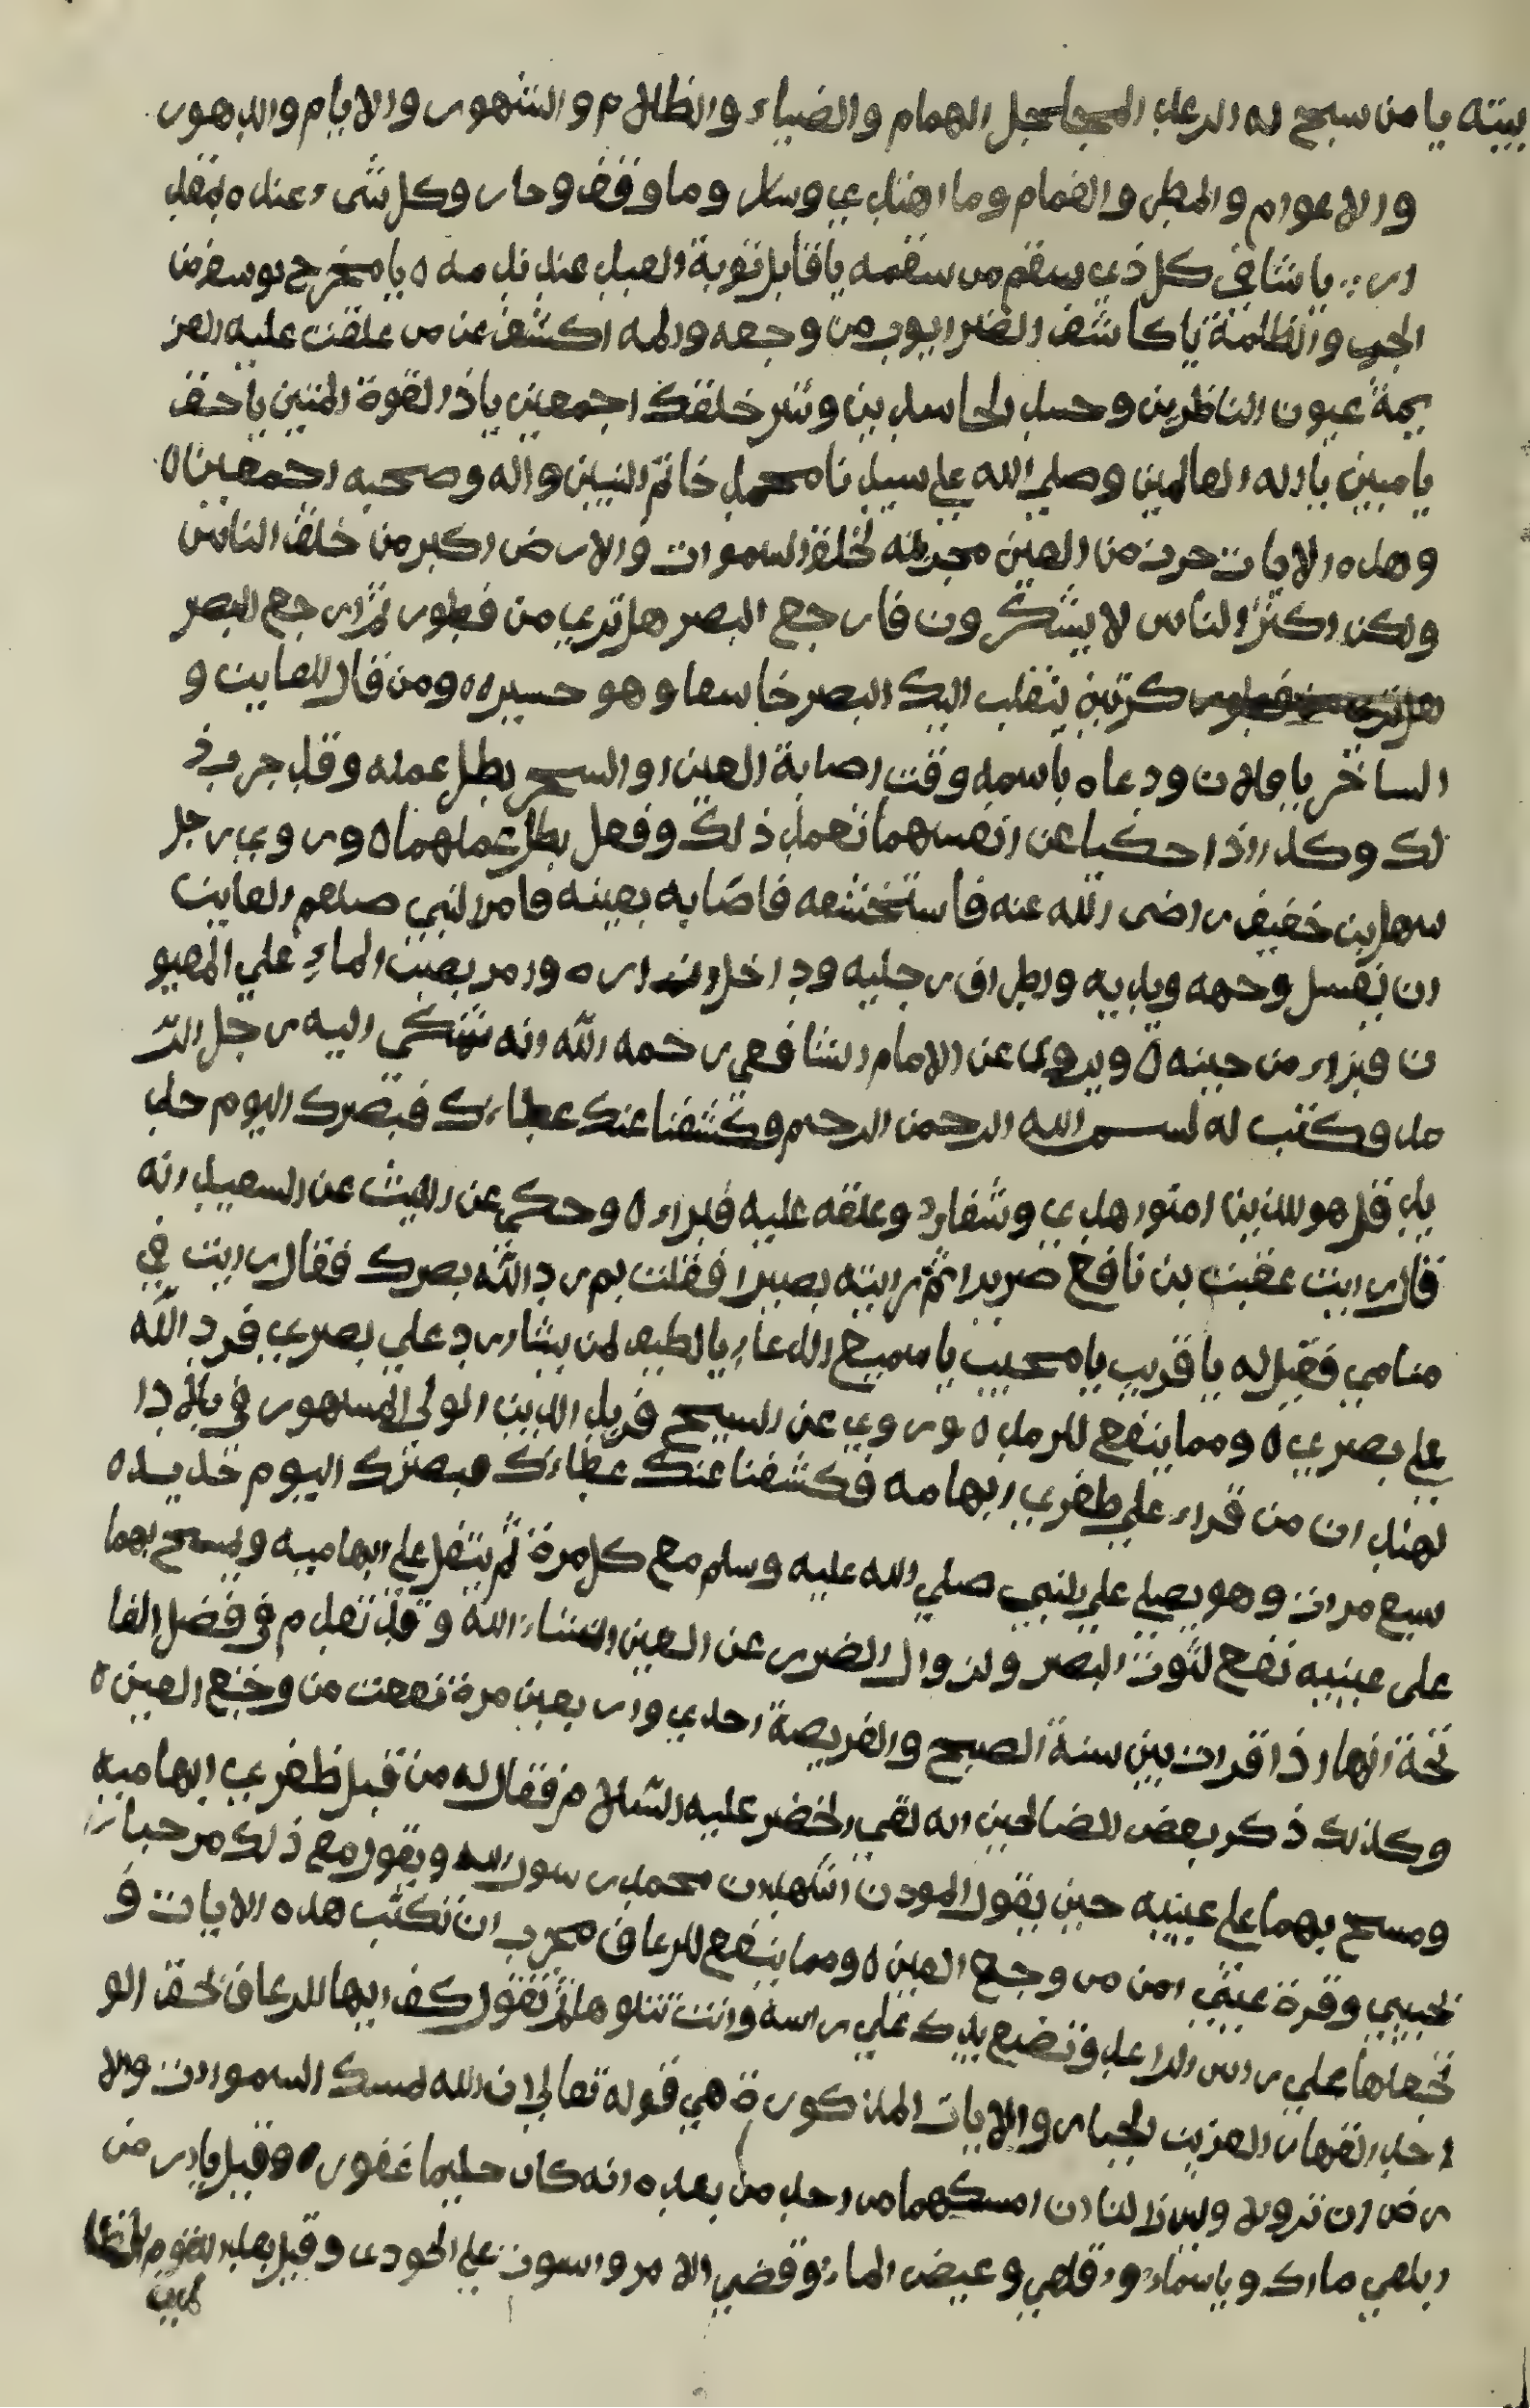 بيته يا من سبح له الرعد المجلجل الهمام والضياء والظلام والشهور والايام والدهور
والاعوام والمطر والغمام وما اهتدي وسار وما وقف وحار وكل شىء عنده بمقد
ار يا شافى كل ذي سقم من سقمه يا قابل توبة العبد عند ندمه ٥ يا مخرج يوسف من
الجب والظلمة يا كاشف الضر ايوب من وجعه والمه اكشف عن من علقت عليه العز
يمة عيون الناظرين وحسد الحاسدين وشر خلقك اجمعين ياذا القوة المتين يا حق
يا مبين يا اله العالمين وصلي الله على سيدنا محمد خاتم النبيين واله وصحبه اجمعين ٥
وهذه الايات حرت من العين مجربة لخلق السموات والارض اكبر من خلق الناس
ولكن اكثر الناس لا يشكرون فارجع البصر هل تري من فطور ثم ارجع البصر
كرتين ينقلب اليك البصر خاسعا وهو حسير ٥٥ ومن قال للعاين و
الساخر يا فلان ودعاه باسمه وقت اصابة العين او السحر بطل عمله وقد جرب ذ
لك وكذا اذا حكيا عن انفسهما تعمد ذلك وفعل بطل عملهما ٥ وروي رجل
سهل بن خفيف راضى الله عنه فاستخشعه فاصابه بعينه فامر النبي صلعم العاين
ان يغسل وجهه ويديه واطراف رجليه وداخل ازاره وامر بصب الماء علي المعيو
ن فبراء من حينه ٥ ويروى عن الامام الشافعي رحمه الله انه شكي اليه رجل الر
مد وكتب له بسم الله الرحمن الرحيم وكشفنا عنك عطاءك فبصرك اليوم حد
يد قل هو للذين امنوا هدي وشفاء وعلقه عليه فبراء ٥ وحكي عن الليث عن السعيد انه
قال رايت عقبت بن نافع ضريرا ثم رايته بصيرا فقلت بم رد الله بصرك فقال رايت في
منامي فقيل له يا قريب يا مجيب يا سميع الدعاء يا لطيف لمن يشاء رد علي بصري فرد الله
علي بصري ٥ ومما ينفع للرمد ٥ وروي عن السيح فريد الدين الولى المسهور في بلاد ا
لهند ان من قراء علي ظفري ابهامه فكشفنا عنك عطاءك فبصرك اليوم حديد ٥
سبع مرات وهو يصلي علي النبي صلي الله عليه وسلم مع كل مرة ثم يتفل علي ابهاميه ويمسح بهما
على عينيه نفع لنور البصر ولزوال الضرر عن العين انشاء الله وقد تقدم في فضل الفا
تحة انها اذا قرات بين سنة الصبح والفريصة احدي واربعين مرة نفعت من وجع العين ٥
وكذلك ذكر بعض الصالحين انه لقي الخضر عليه السلام فقال له من قبل ظفري ابهاميه
ومسح بهما علي عينيه حين يقول المودن اشهد ان محمد رسول الله ويقول مع ذلك مرحبا
بحبيبي وقرة عيني امن من وجع العين ٥ ومما ينفع للرعاف مجرب ان تكتب هذه الايات و
تجعلها علي راس الراعد وتضع يدك علي راسه وانت تتلوها ثم تقول كف ايها للرعاف بحق الو
احد القهار العزيز الجبار والايات المذكورة هي قوله تعالي ان الله يمسك السموات والا
رض ان تزولا ولين زالتا ان امسكهما من احد من بعده انه كان حليما غفورا ٥ وقيل يا ارض
ابلعي ماءك ويا سماء اقلعي وغيض الماء وقضي الامر واسوت علي الجودى وقيل بعدا للقوم الظا
لمين